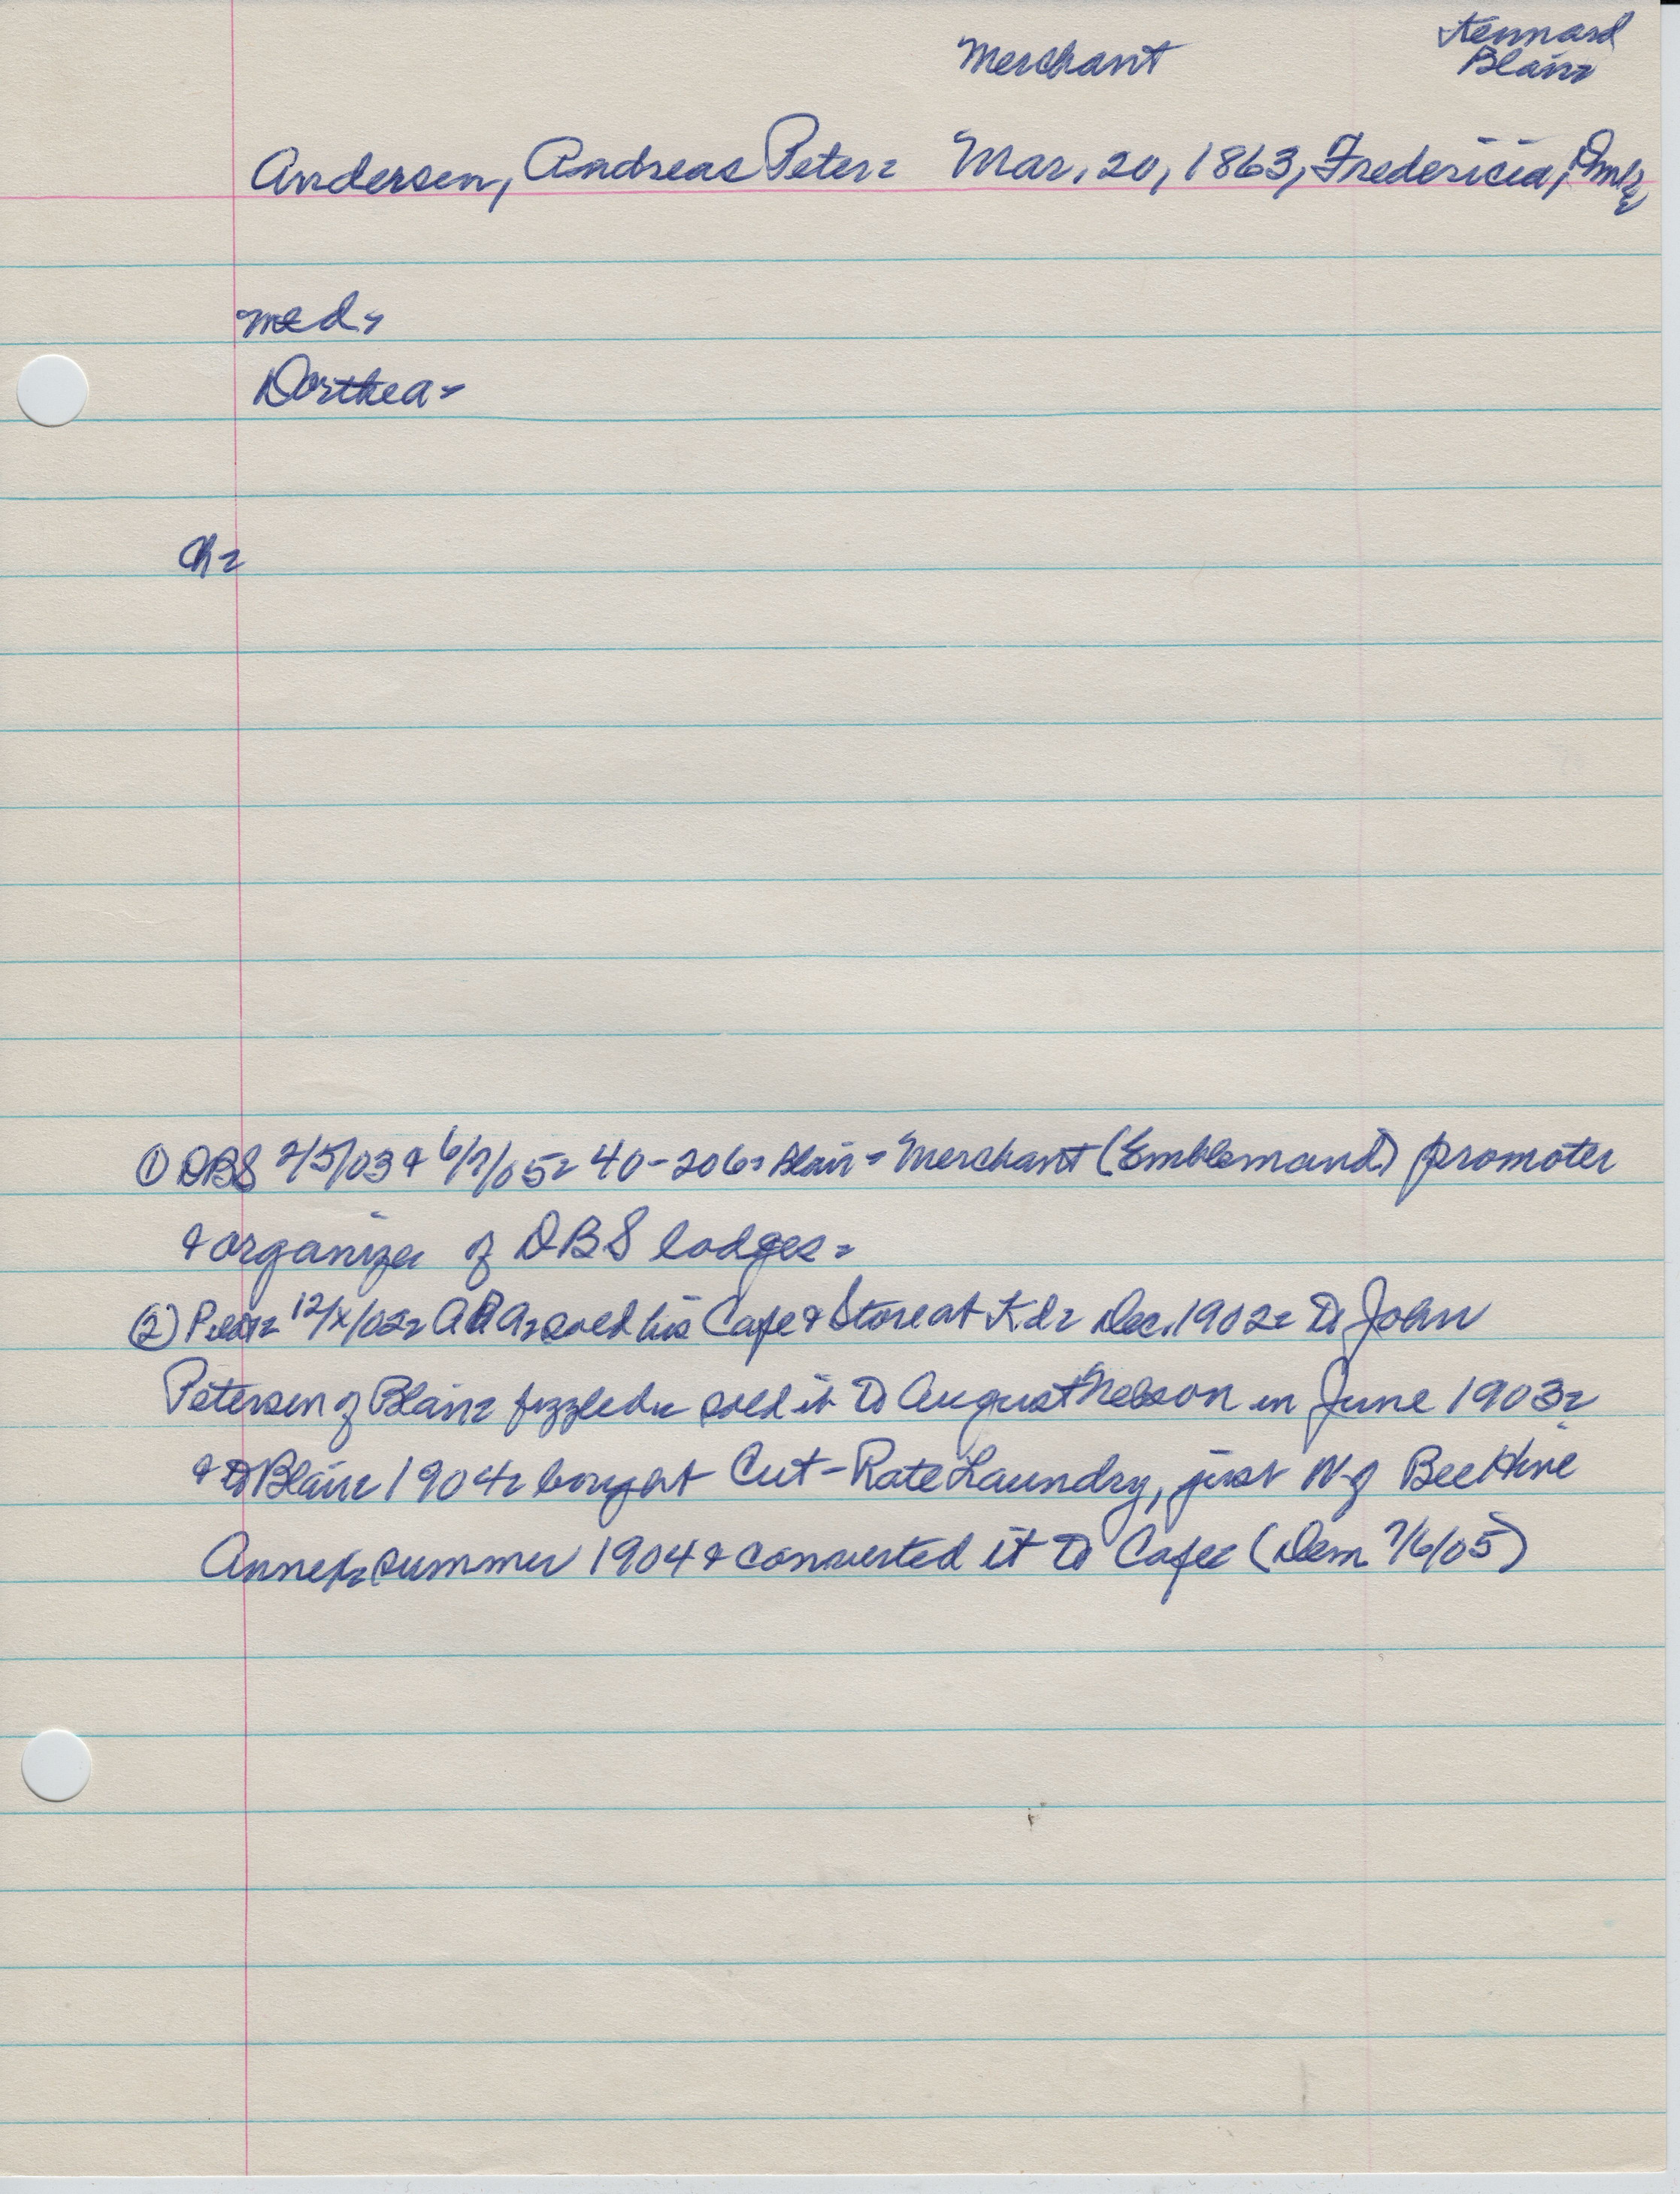 Merchant Kennard
Blair=
Andersen, Andreas Peter= Mar. 20, 1863, Fredericia, Dmk=
med=
Dorthea=
Ch=
① DBS 2/5/03 & 6/7/05= 40-206= Blair= Merchant (Emblemand) promoter
& organizer of DBS lodges=
② 12/X/02= APA= sold his Cafe & Store at Kd= Dec. 1902= to John
Petersen of Blair= fizzled= sold it to August Nelson in June 1903=
& to Blair= 1904= bought Cut-Rate Laundry, just N of Bee Hive
Annex= summer 1904 & converted it to Cafe= (Dem 7/6/05)